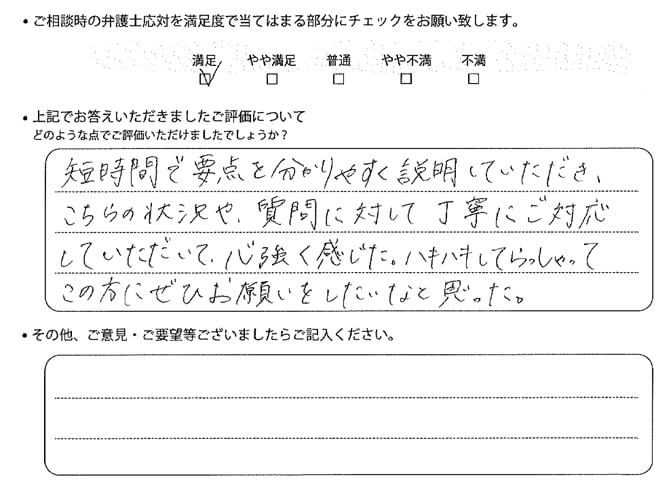 • ご相談時の弁護士応対を満足度で当てはまる部分にチェックをお願い致します。
満足 やや満足 普通 やや不満 不満
• 上記でお答えいただきましたご評価について
どのような点でご評価いただけましたでしょうか？
短時間で要点を分かりやすく説明していただき、
こちらの状況や、質問に対して丁寧にご対応
していただいて、心強く感じた。ハキハキしてらっしゃって
この方にぜひお願いをしたいなと思った。
• その他、ご意見・ご要望等ございましたらご記入ください。